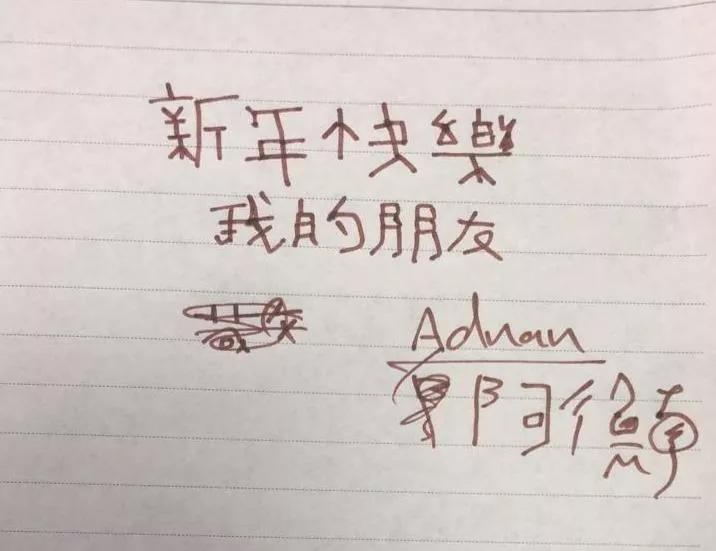 新年快樂
我的朋友
Adnan
阿